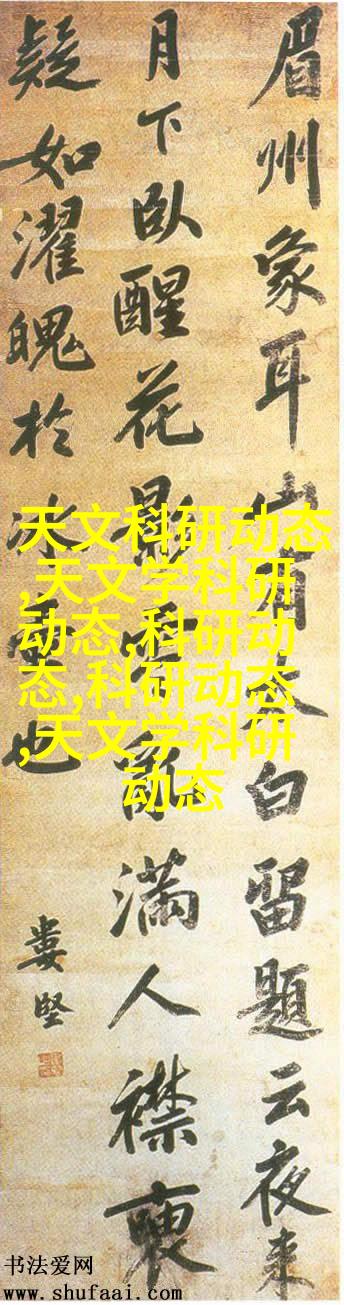 眉州象耳山有太白留題云夜来
月下臥醒花影零亂滿人襟
疑如濯魄於冰也
婁堅
天文科研动态
,天文学科研
动态,科研动
态,科研动态
,天文学科研
动态
书法爱网
www.shufaai.com